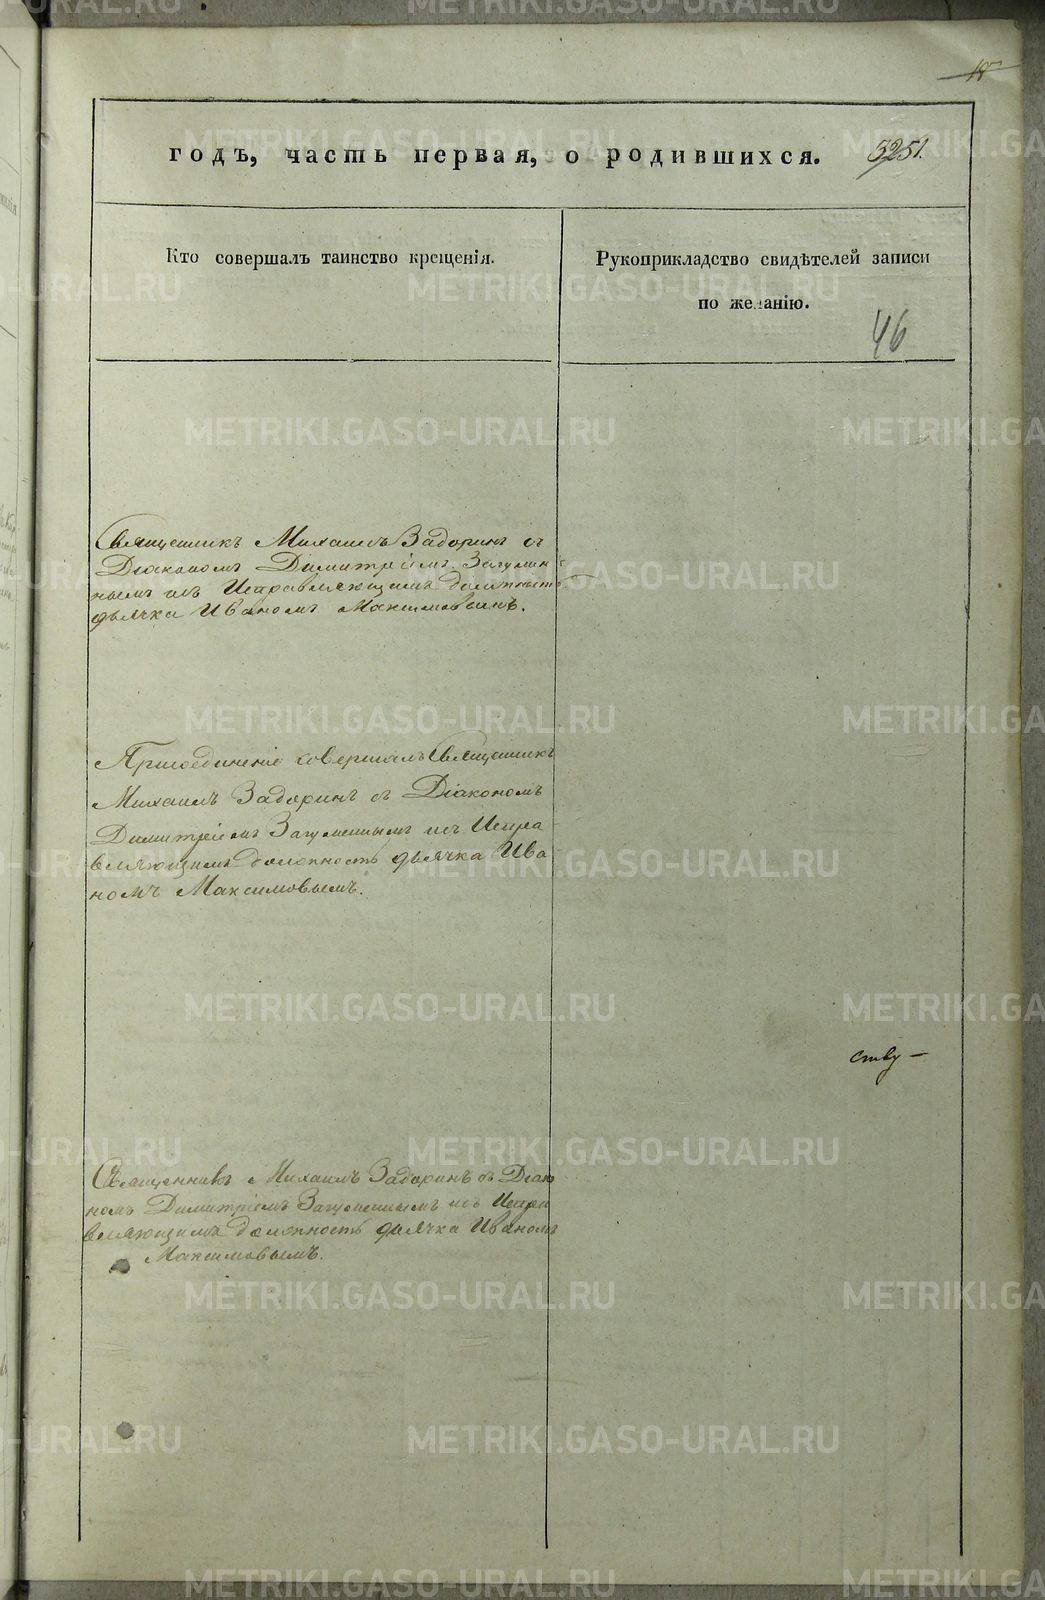 18
годъ, часть первая, о родившихся. 3251.
Кто совершалъ таинство крещенія.
Рукоприкладство свидѣтелей записи
по желанію.
46
Священникъ Михаилъ Задоринъ съ
Діакономъ Димитріемъ Загумен-
нымъ и Исправляющимъ должность
дьячка Иваномъ Максимовымъ.
Присоединеніе совершалъ Священникъ
Михаилъ Задоринъ съ Діакономъ
Димитріемъ Загуменнымъ и Испра-
вляющимъ должность дьячка Ива
номъ Максимовымъ.
ству —
Священникъ Михаилъ Задоринъ съ Діако
номъ Димитріемъ Загуменнымъ и Испра
вляющимъ должность дьячка Иваномъ
Максимовымъ.
METRIKI.GASO-URAL.RU